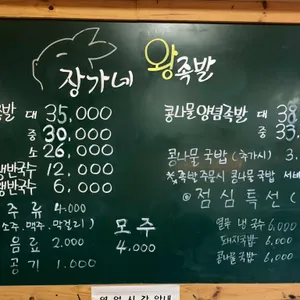 장가네 왕족발
족발 대 35,000
중 30,000
소 26,000
쟁반국수 12,000
쟁반국수 6,000
주류 4.000
(소주.맥주.막걸리)
음료 2.000
공기 1.000
모주
4,000
콩나물양념족발 대 38
중 33
콩나물국밥 (추가시) 3.
족발주문시 콩나물국밥 서비
◉ 점심특선 (
열무냉국수 6,000
돼지국밥 6,000
콩나물국밥 6,000
영업시간안내